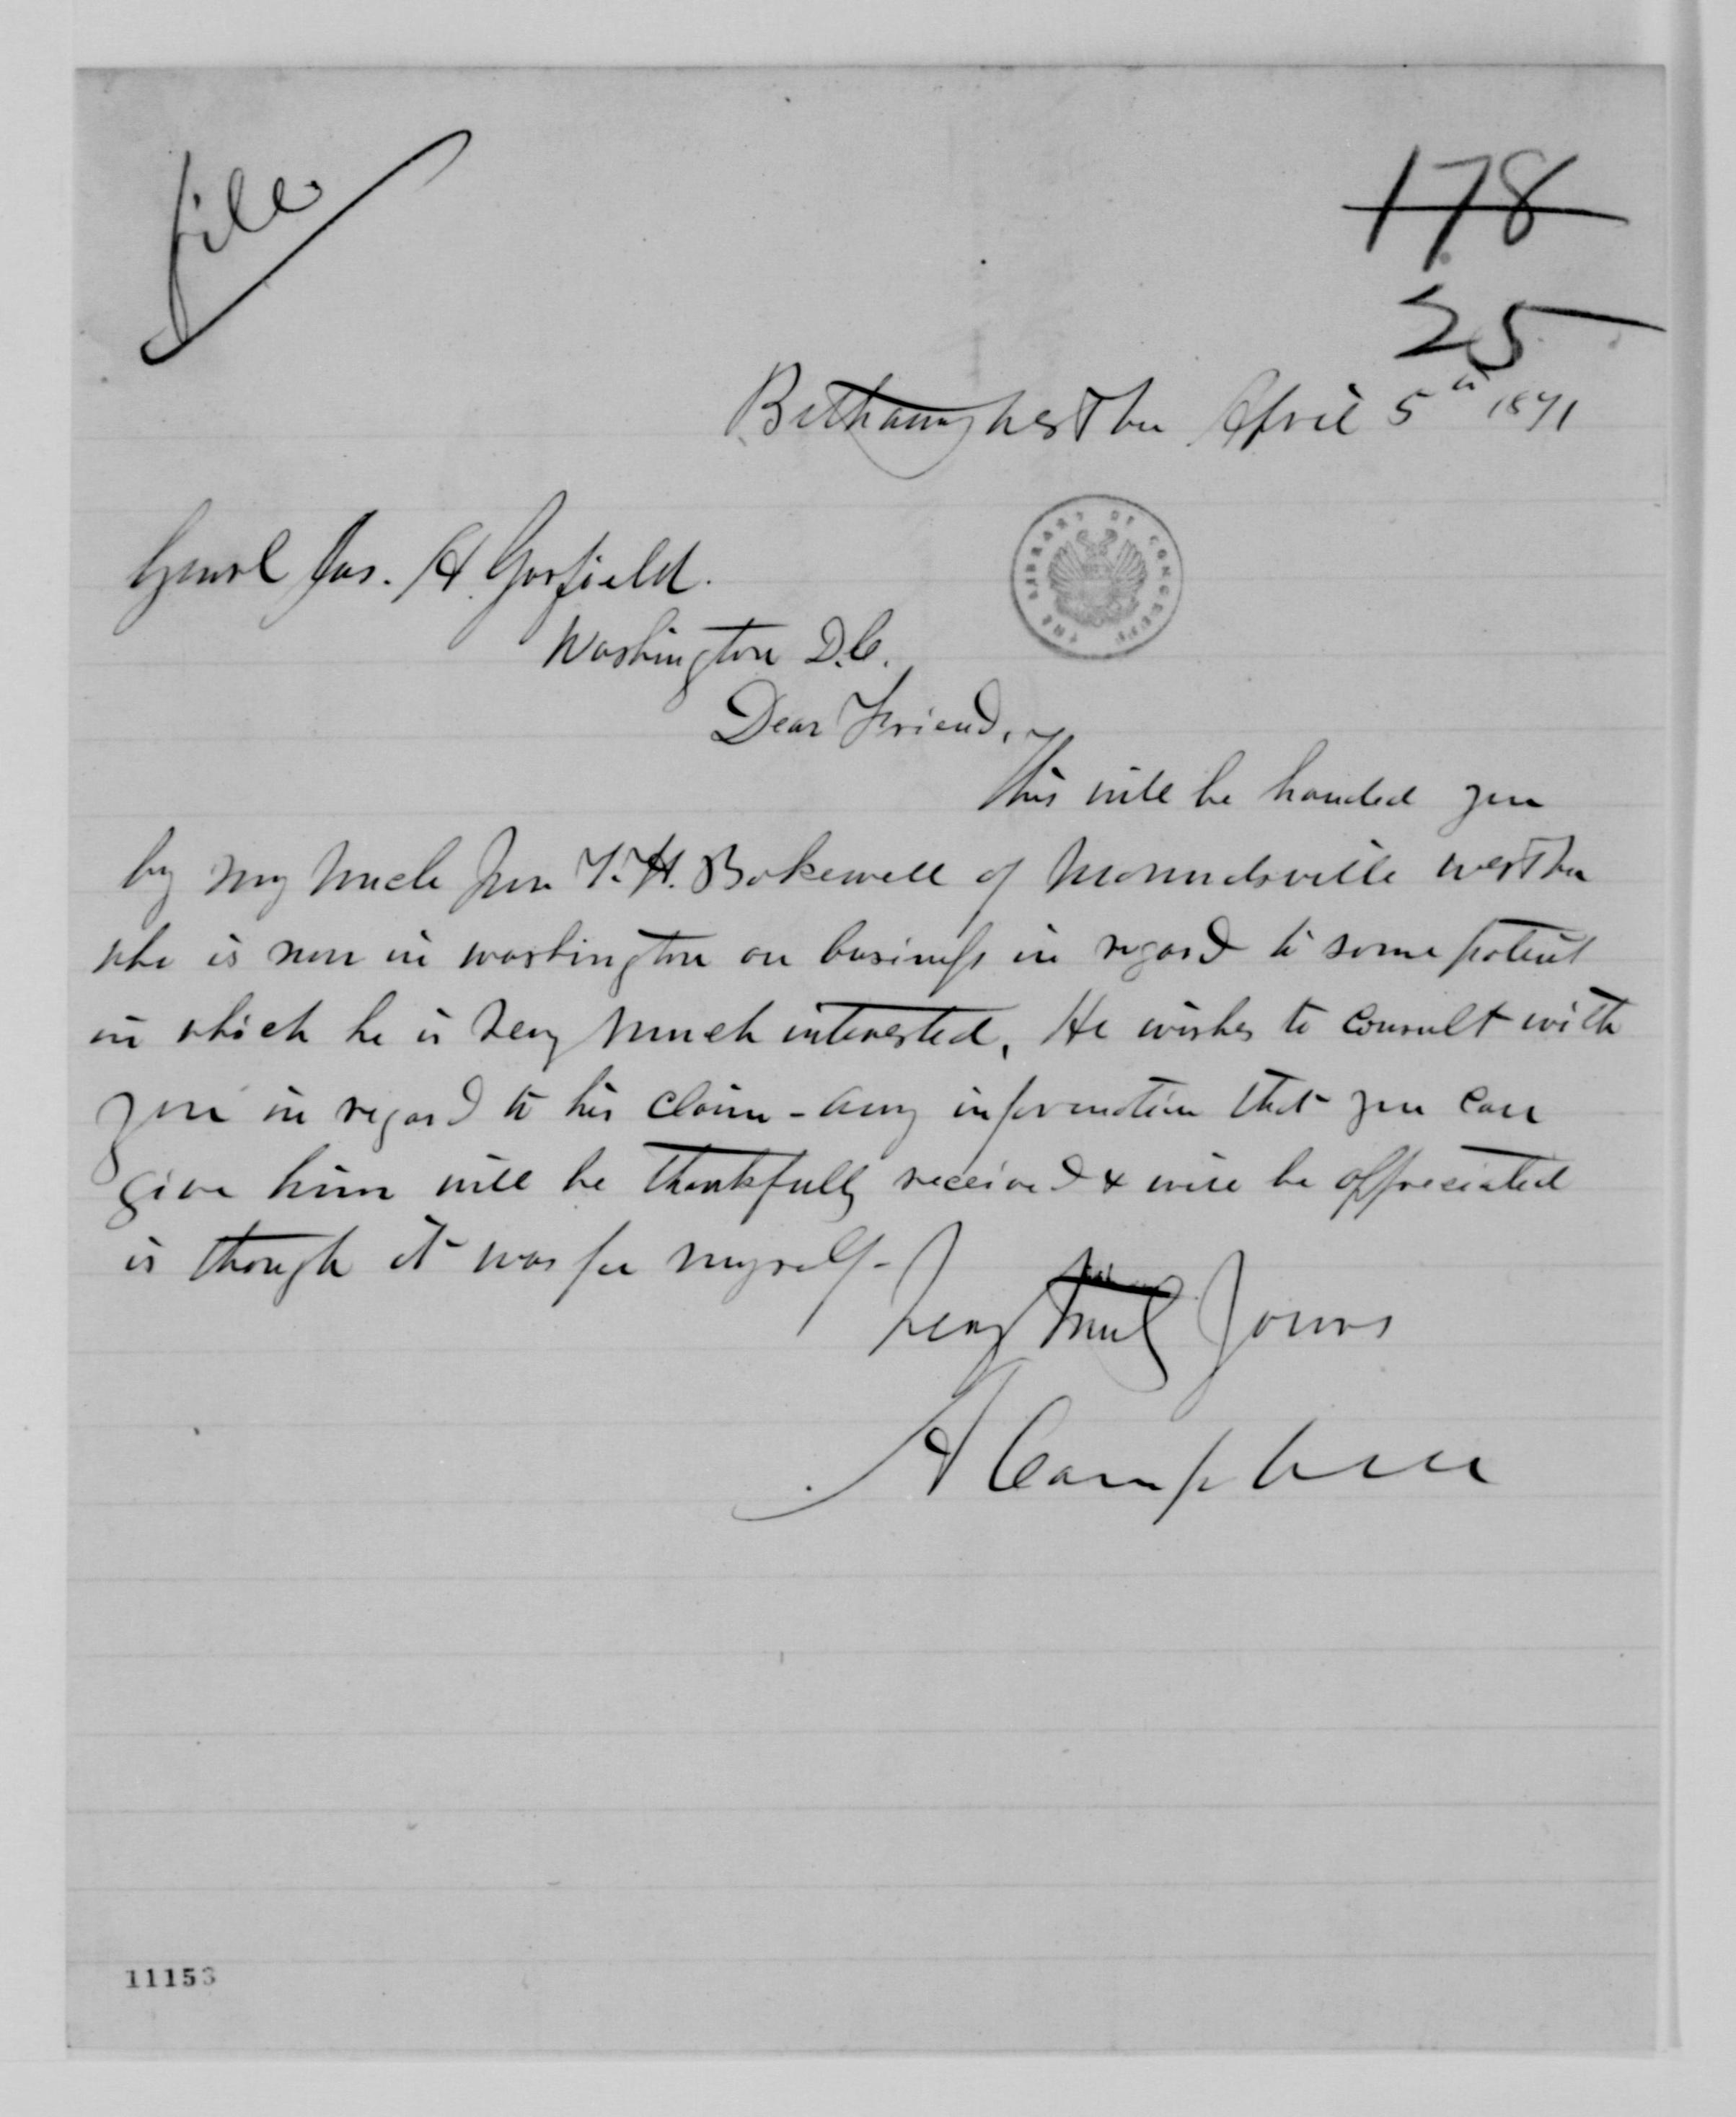 file
178
25
Bethany West Va April 5th 1871
Genrl Jas. A. Garfield.
THE LIBRARY OF CONGRESS
Washington D.C.
Dear Friend,
This will be handed you
by my Uncle T. H. Bakewell of Moundsville West Va
who is now in Washington on business in regard to some patent
in which he is very much interested. He wishes to consult with
you in regard to his claim - any information that you can
give him will be thankfully received & will be appreciated
as though it was for myself -
Very truly yours
A Campbell
11153